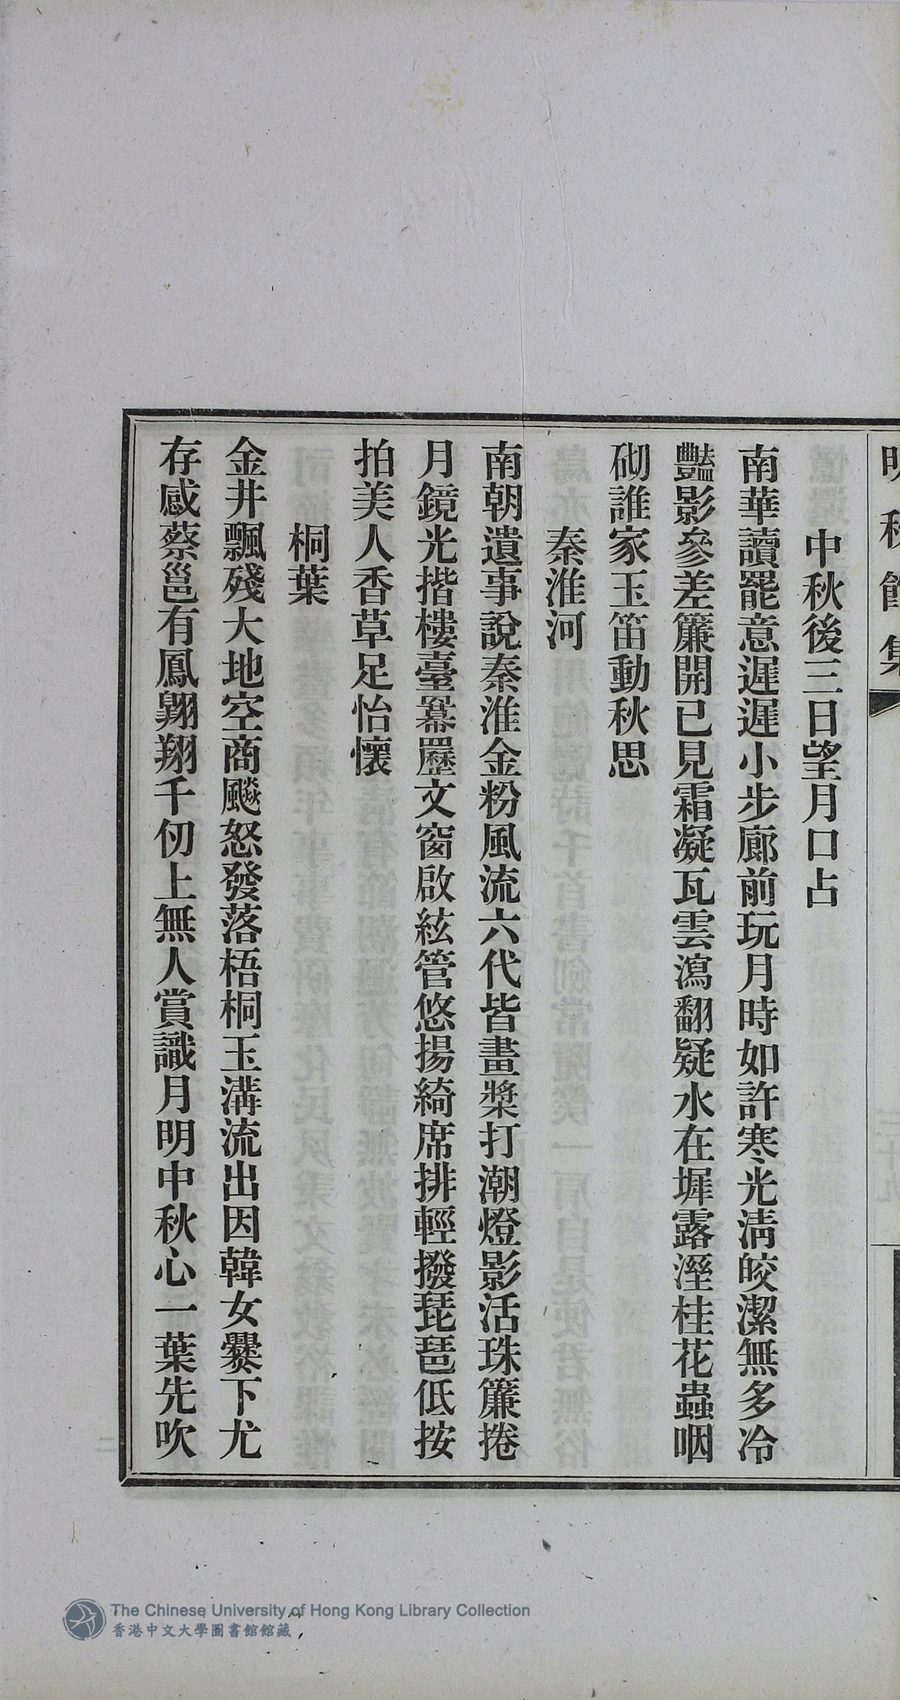 明秋館集
中秋後三日望月口占
南華讀罷意遲遲小步廊前玩月時如許寒光淸皎潔無多冷
豔影參差簾開已見霜凝瓦雲瀉翻疑水在墀露溼桂花蟲咽
砌誰家玉笛動秋思
秦淮河
南朝遺事說秦淮金粉風流六代皆畫槳打潮燈影活珠簾捲
月鏡光揩樓臺羃䍥文窗啟絃管悠揚綺席排輕撥琵琶低按
拍美人香草足怡懷
桐葉
金井飄殘大地空商飈怒發落梧桐玉溝流出因韓女爨下尤
存感蔡邕有鳳翺翔千仞上無人賞識月明中秋心一葉先吹
The Chinese University of Hong Kong Library Collection
香港中文大學圖書館館藏